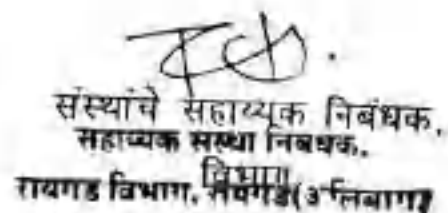 संस्थांचे सहाय्यक निबंधक,
सहाय्यक संस्था निबंधक,
विभाग
रायगड विभाग, रायगड(अलिबाग)